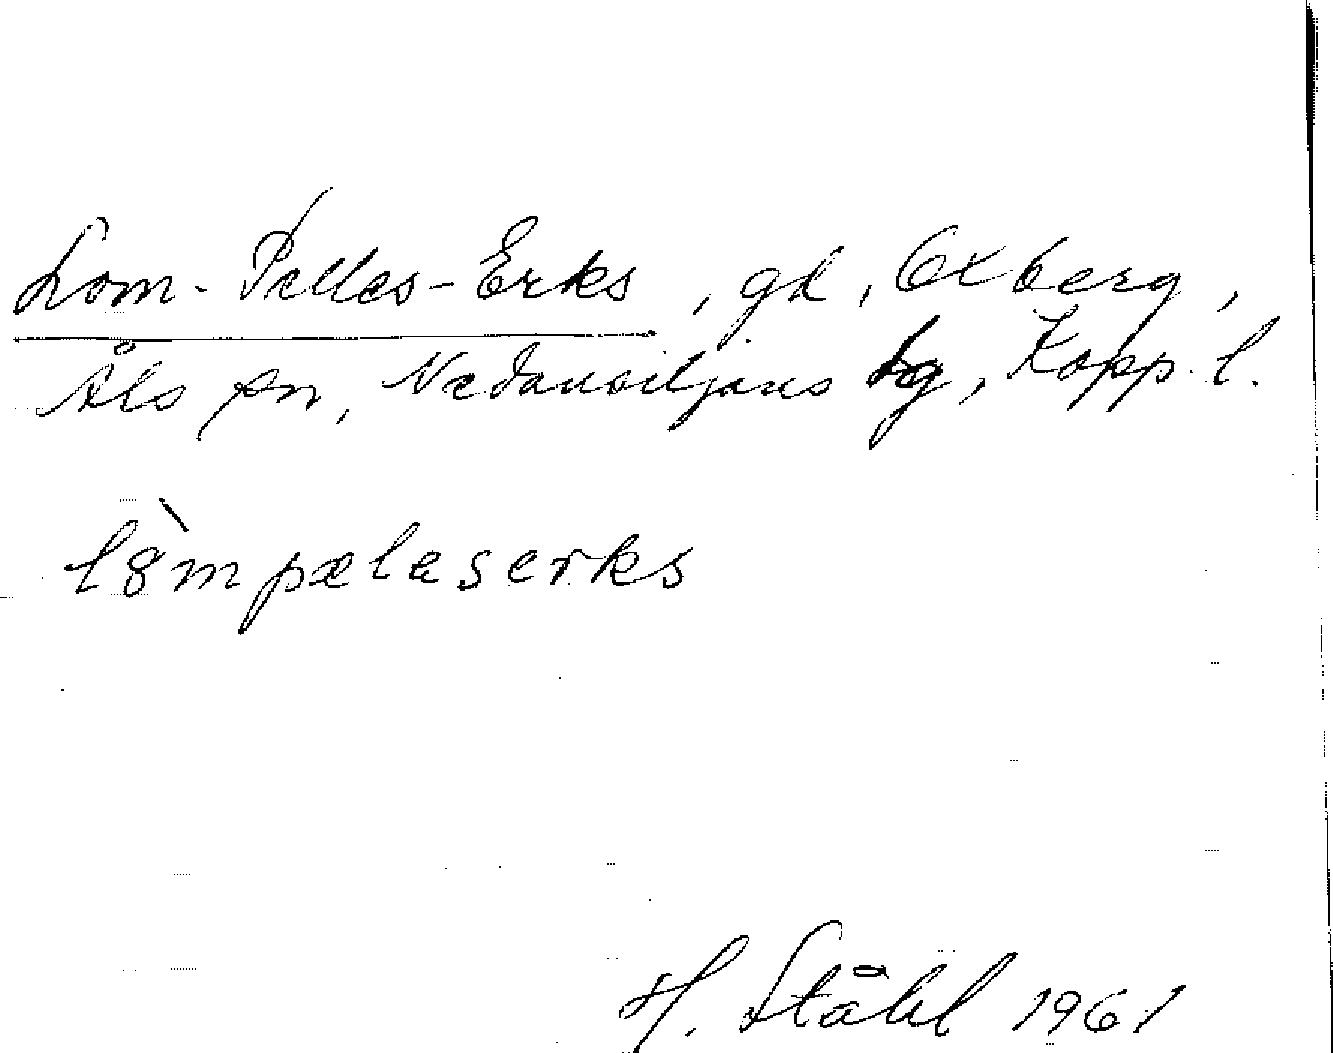 Lom-Pelles-Erks, gd, Oxberg,
Åls sn, Nedansiljans tg, Kopp. l.
lȣ̀mpælasɛrks
H. Ståhl 1961